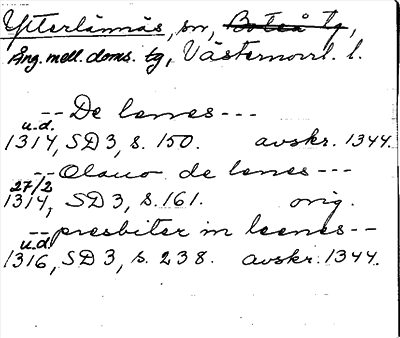 Ytterlännäs, sn, Boteå tg,
Ång. mell. doms. tg, Västernorrl. l.
-- De lenes ---
u.d.
1314, SD 3, s. 150. avskr. 1344.
-- Olauo de lenes ---
27/2
1314, SD 3, s. 161. orig.
-- presbiter in leenes --
u.d.
1316, SD 3, s. 238. avskr. 1344.